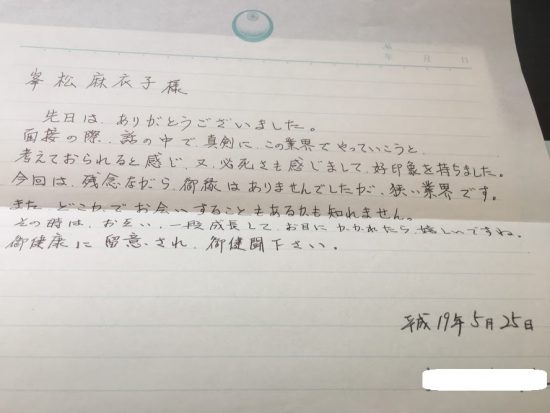 年 月 日
峯松麻衣子様
先日は、ありがとうございました。
面接の際、話の中で、真剣に、この業界でやっていこうと、
考えておられると感じ、又、必死さも感じまして、好印象を持ちました。
今回は、残念ながら、御縁はありませんでしたが、狭い業界です。
また、どこかでお会いすることもあるかも知れません。
その時は、お互い、一段成長して、お目にかかれたら、嬉しいですね。
御健康に留意され、御健闘下さい。
平成19年5月25日